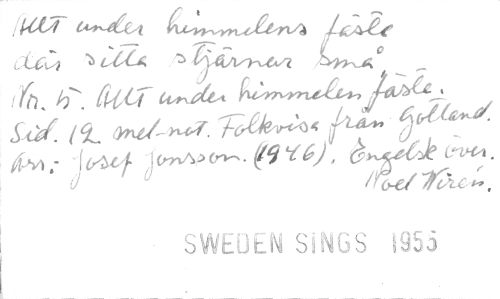 Allt under himmelens fäste
där sitta stjärnor små
Nr. 5. Allt under himmelen fäste.
Sid. 12 mel-not. Folkvisa från Gotland.
Arr: Josef Jonsson. (1946). Engelsk över.
Noel Wirén.
SWEDEN SINGS 1955